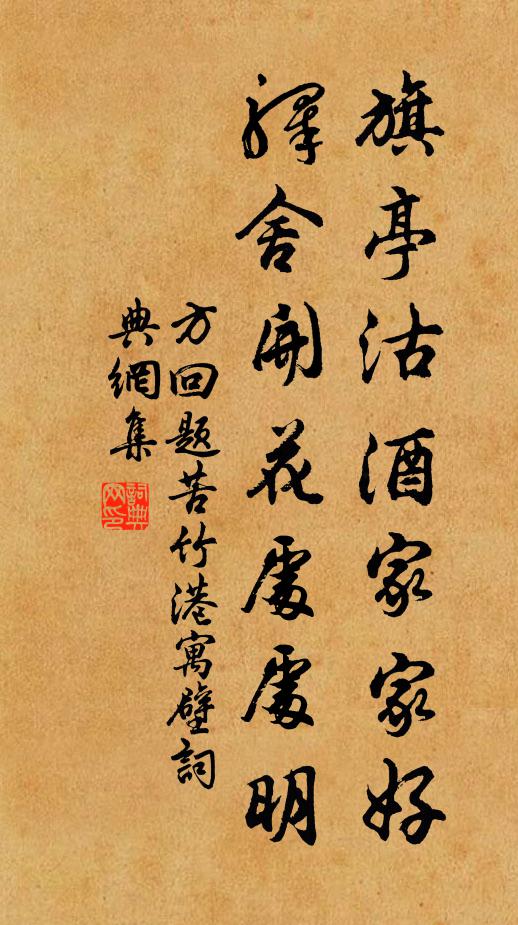 旗亭沽酒家家好
驛舍開花處處明
方回題苦竹港寓壁詞
典網集
詞典網印